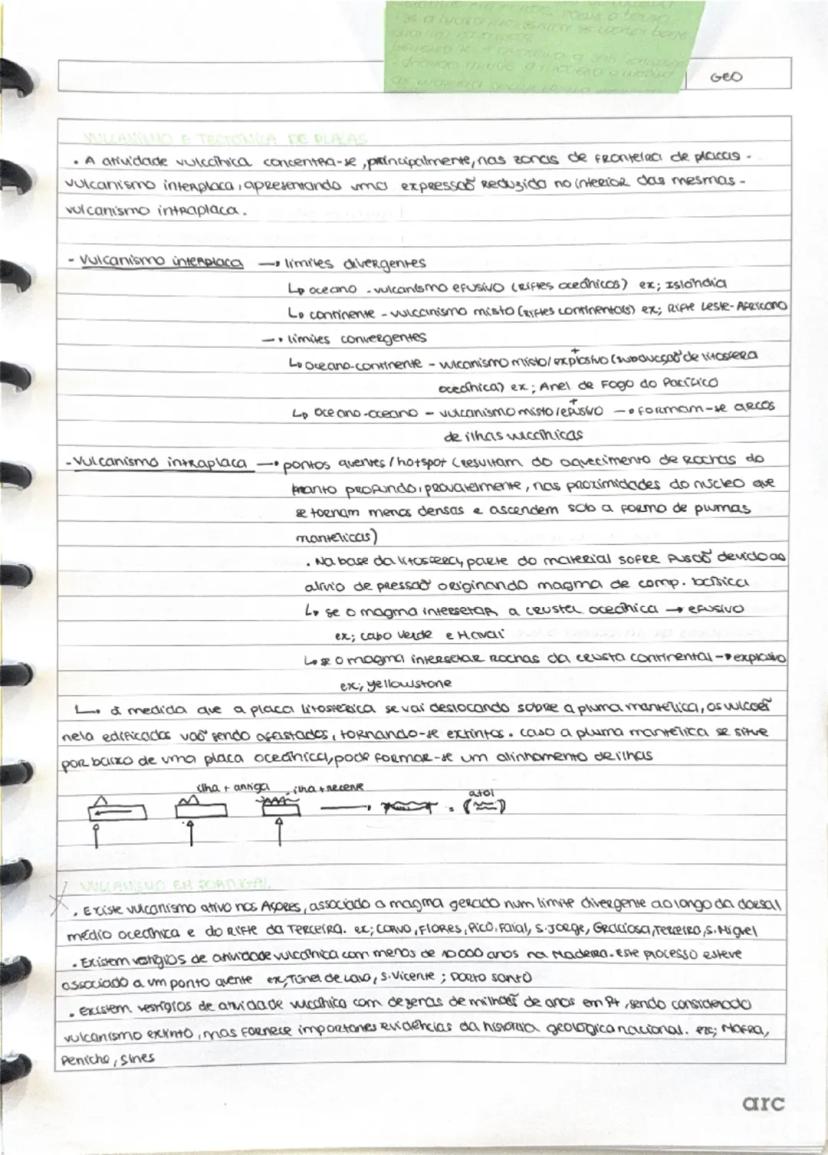 GEO
VULCANISMO E TECTÓNICA DE PLACAS
. A atividade vulcânica concentra-se, principalmente, nas zonas de fronteira de placas -
vulcanismo interplaca, apresentando uma expressão reduzida no interior das mesmas -
vulcanismo intraplaca.
- Vulcanismo interplaca → limites divergentes
↳ oceano - vulcanismo efusivo (riftes oceânicos) ex; Islândia
↳ continente - vulcanismo misto (riftes continentais) ex; Rifte Leste-Africano
→ limites convergentes
↳ oceano-continente - vulcanismo misto/explosivo + (subducção de litosfera
oceânica) ex; Anel de Fogo do Pacífico
↳ oceano-oceano - vulcanismo misto/efusivo + → formam-se arcos
de ilhas vulcânicas
- Vulcanismo intraplaca → pontos quentes/hotspot (resultam do aquecimento de rochas do
manto profundo, provavelmente, nas proximidades do núcleo que
se tornam menos densas e ascendem sob a forma de plumas
mantélicas)
. Na base da litosfera, parte do material sofre fusão devido ao
alívio de pressão originando magma de comp. básica
↳ se o magma intersetar a crusta oceânica → efusivo
ex; cabo verde e Havai
↳ se o magma intersetar rochas da crusta continental → explosivo
ex; yellowstone
↳ à medida que a placa litosférica se vai deslocando sobre a pluma mantélica, os vulcões
nela edificados vão sendo afastados, tornando-se extintos. caso a pluma mantélica se situe
por baixo de uma placa oceânica, pode formar-se um alinhamento de ilhas
ilha + antiga ilha + recente atol
VULCANISMO EM PORTUGAL
. Existe vulcanismo ativo nos Açores, associado a magma gerado num limite divergente ao longo da dorsal
médio oceânica e do Rifte da Terceira. ex; Corvo, Flores, Pico, Faial, S. Jorge, Graciosa, Terceira, S. Miguel
. Existem vestígios de atividade vulcânica com menos de 10 000 anos na Madeira. Este processo esteve
associado a um ponto quente ex; Túnel de Lava, S. Vicente; Porto Santo
. Existem vestígios de atividade vulcânica com dezenas de milhões de anos em Pt, sendo considerado
vulcanismo extinto, mas fornece importantes evidências da história geológica nacional. ex; Mafra,
Peniche, Sines
arc